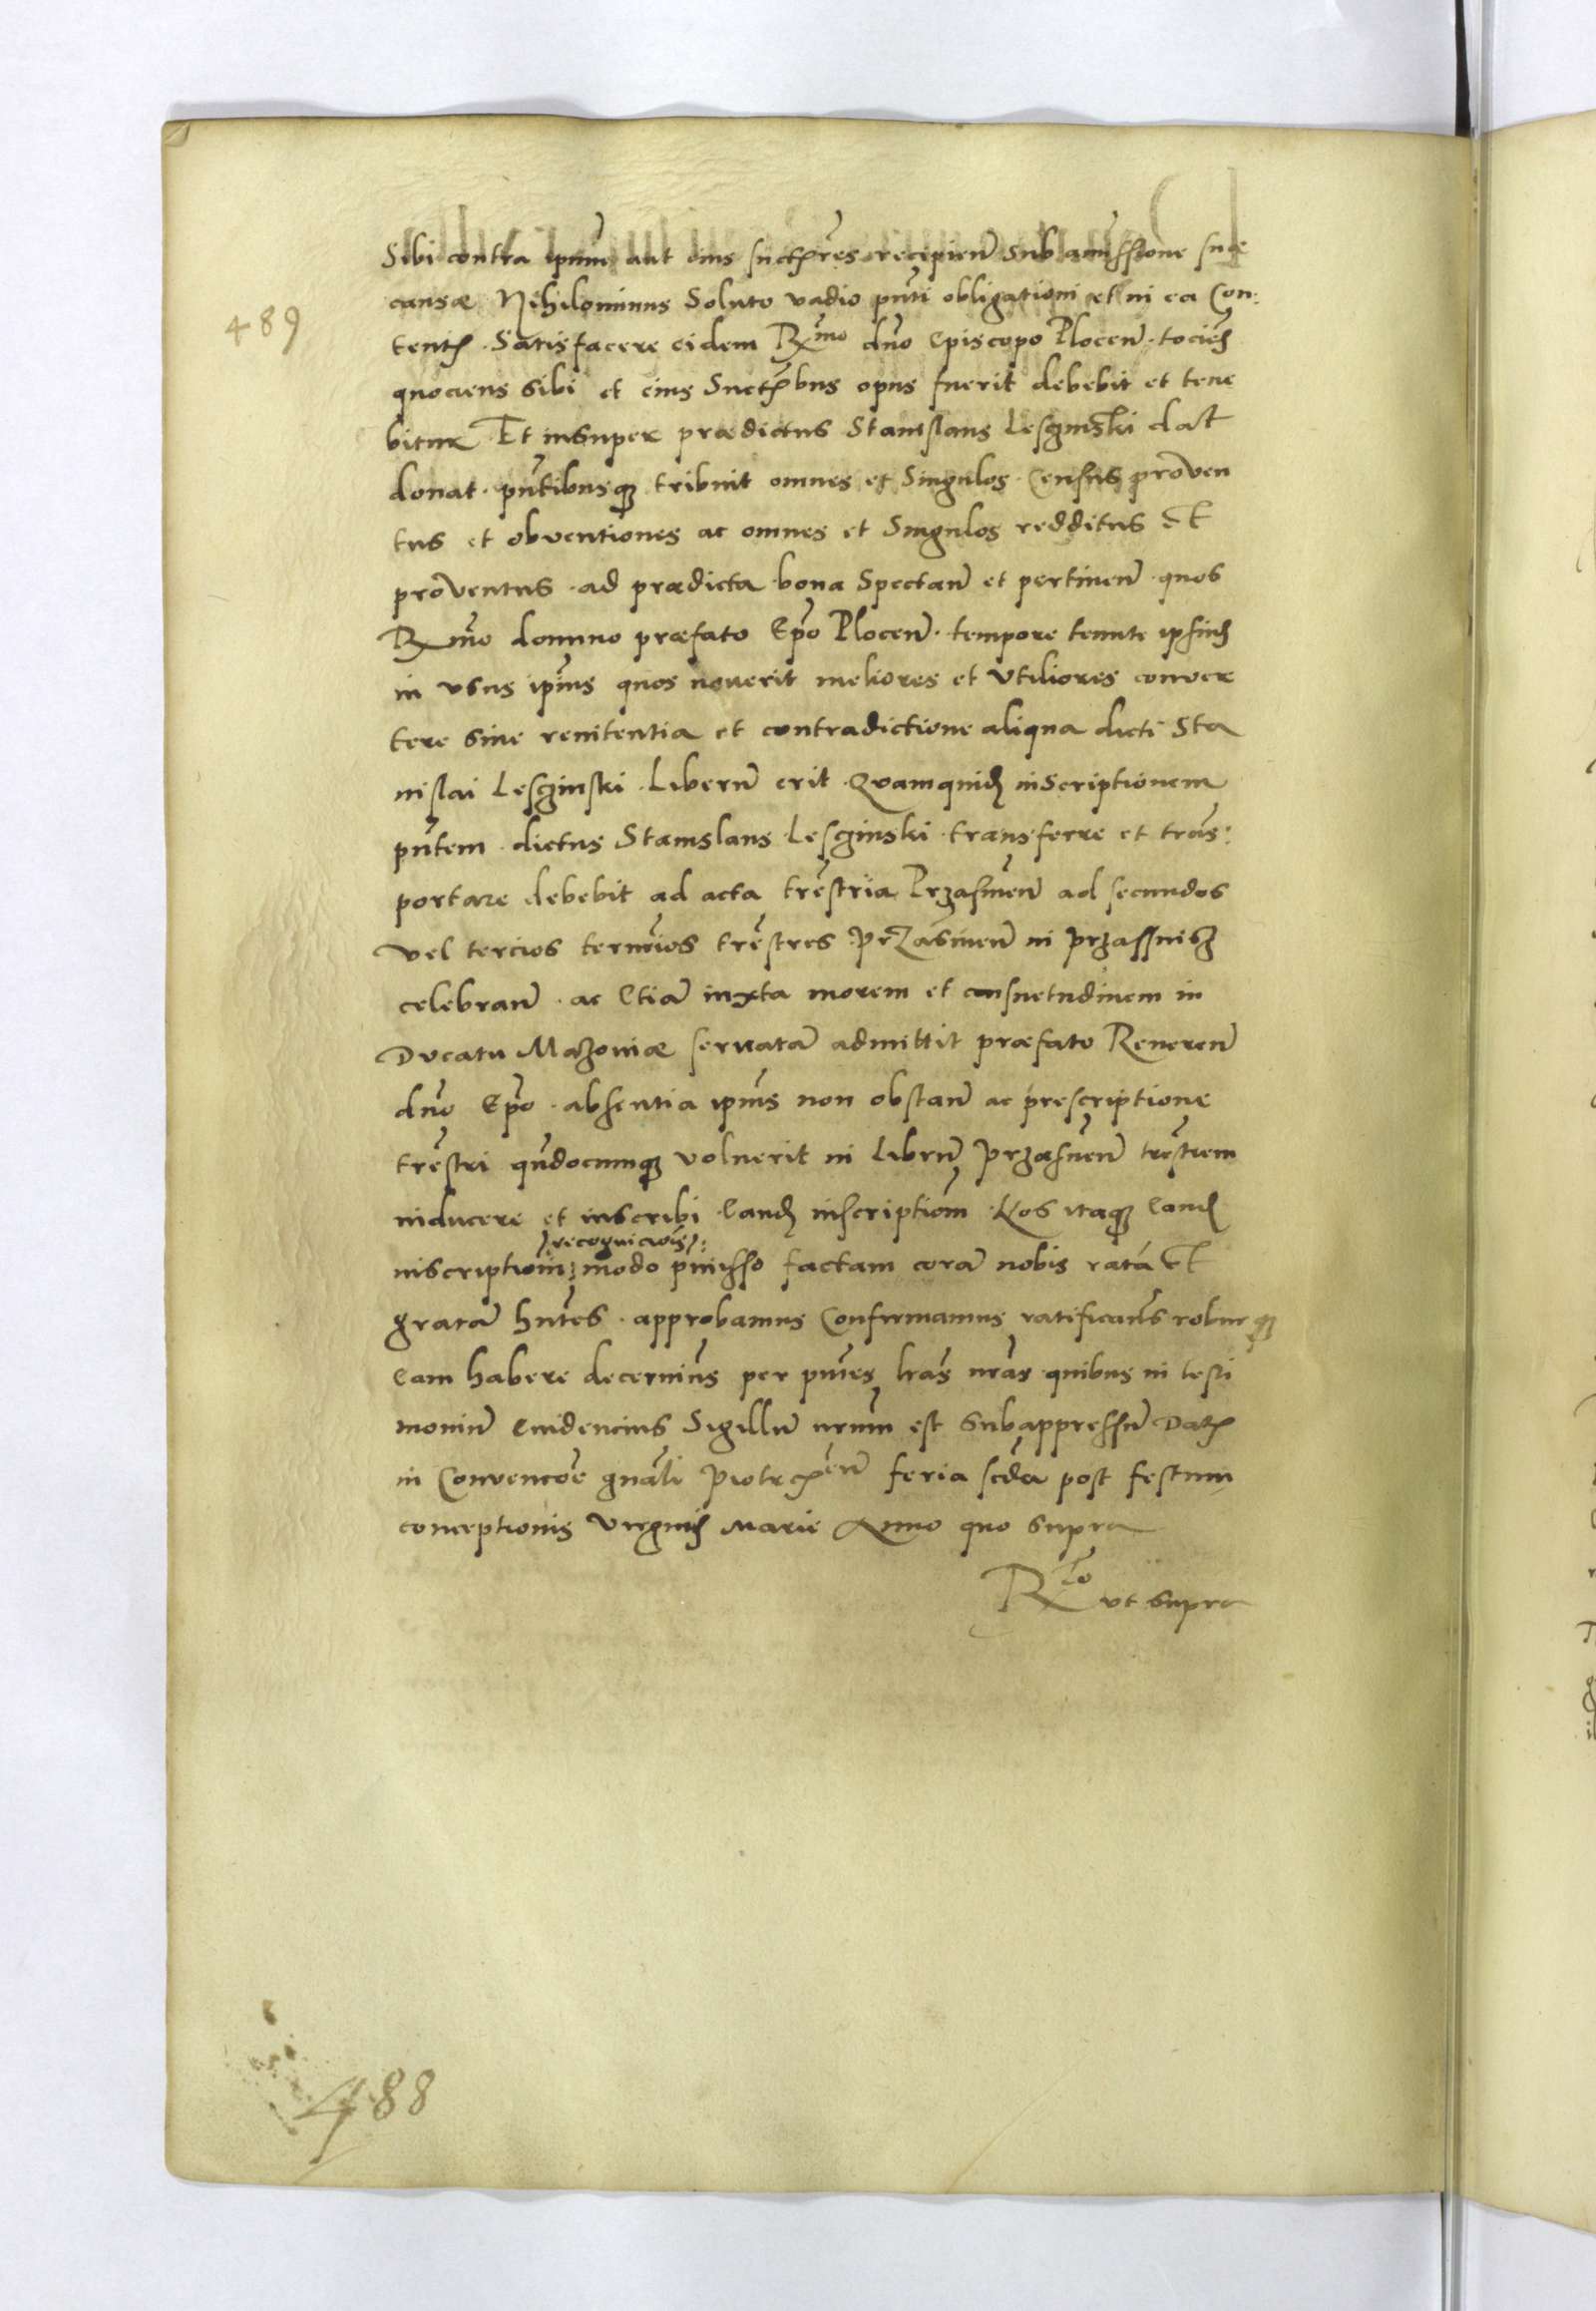 Sibi contra ipsum aut eius succ̄res recipien̄ sub amissione suæ
causæ Nihilominus Soluto vadio pn̄ti obligationi et in ea Con:
tentꝭ . Satisfacere eidem Rx̄mo dn̄o Episcopo Plocen̄ . tocieꝭ
489
quociens sibi et eius Succ̄bus opus fuerit debebit et tene
bitur Et insuper prædictus Stanislaus Lesczinski dat
donat . pn̄tibusqꝫ tribuit omnes et Singulos . Census proven
tus et obventiones ac omnes et Singulos redditus Et
proventus . ad prædicta . bona Spectan̄ et pertinen̄ . quos
Rx̄mo domino præfato Ep̄o Plocen̄ . tempore tenute ipsiuꝭ
in usus ip̄ius quos noverit meliores et Utiliores conver
tere sine renitentia et contradictione aliqua dicti Sta
nislai Lesczinski . Liberū erit . Quamquidꝫ inscriptionem
pn̄tem . dictus Stanislaus . Lesczinski . transferre et trās:
portare debebit ad acta trēstria Przasnen̄ ad secundos
vel tercios termīos trēstres Przasnen̄ in przassnisꝫ
celebran̄ . ac Etiā iuxta morem et consuetudinem in
Ducatu Mazoviæ servatā admittit præfato Reveren̄
dn̄o Ep̄o . absentia ip̄ius non obstan̄ ac prescriptione
trēstri qn̄documqꝫ voluerit in Librū Przasnen̄ trēstrem
inducere et inscribi . Eandꝫ inscriptiom̄ . Nos itaqꝫ Eandꝫ
recognicois̄
inscriptiom̄ modo pmisso factam corā nobis ratā Et
gratā hn̄tes . approbamus Confirmamus ratificam̄s roburqꝫ
Eam habere decernim̄s per pn̄tes lr̄as nr̄as quibus in testi
moniū Evidencius Sigillū nr̄um est subappressū Datꝭ
in Convenc̄oe gn̄ali Piotrcen̄ feria scd̄a post festum
conceptionis virginꝭ Marie Anno quo supra
Rᵒ ut supra
488